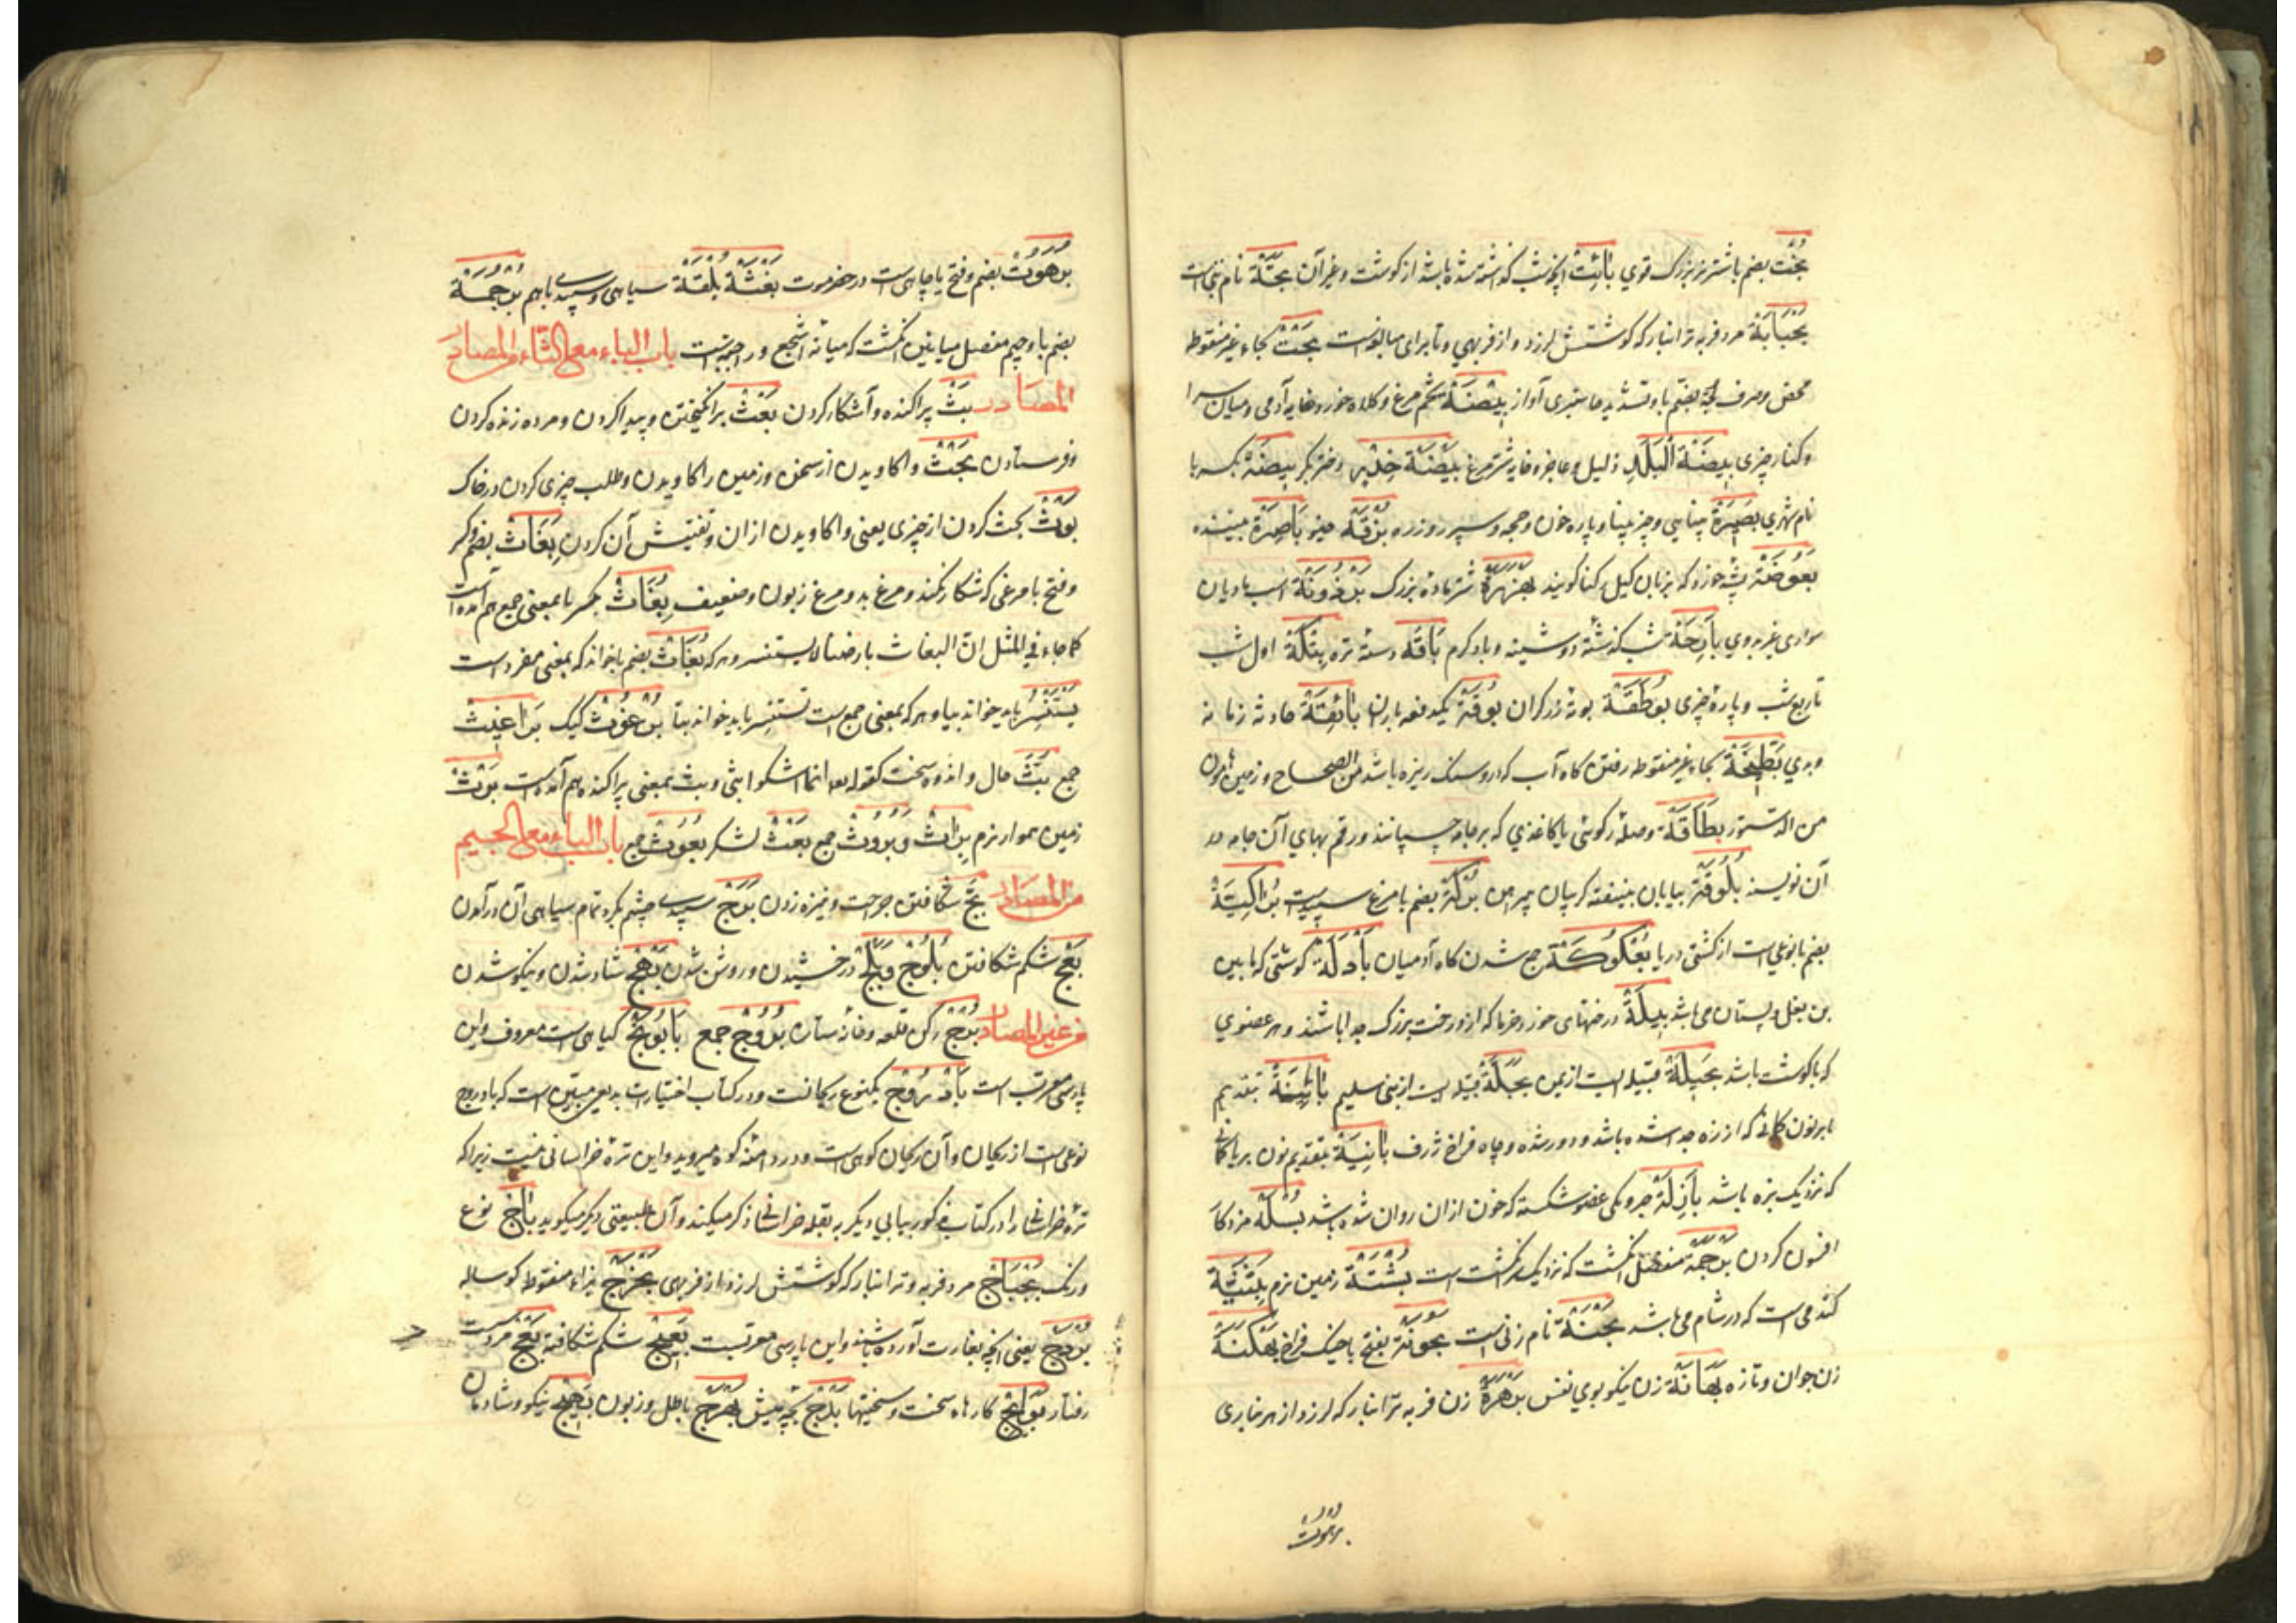 بُخْت بضم با شتر نر بزرگ قوي بَائِتْ آنچه شب گذاشته شده باشد از کوشت و غیر آن بَجَّة نام بتی است
بَخْبَابَة مرد فربه تر انبار که کوشتش لرزد و از فربهي و تا برای مبالغه است بَحْت بحاء غیر منقوطه
محض و صرف بُحَّة بضم با و تشدید حا ستبری آواز بَیْضَة تخم مرغ و کلاه خود و خایه آدمی و میان سرا
و کنار چیزی بَیضَة الْبَلَد ذلیل و عاجز و خایه شتر مرغ بَیْضَة خِدْر دختر بکر بِیضَة بکسر با
نام شهري بَصِیرَة بینایی و چیز بینا و پاره خون و حجه و سپر و زره بَاصِرَة بیننده
بَعُوضَة پشه خورد که بزبان گیل کنا کویند بُهْزُرَة شتر ماده بزرگ بِرْذَوْنَة اسب مادیان
سواری غیر بدوي بَارِحَة شب کذشته دوشینه و باد کرم بَاقَة دسته تره بِتْکَة اول شب
تا ربع شب و پاره چیزی بُوطَقَة بوته زرکران بُوقَة یکدفعه باران بَائِقَة حادثه زمانه
و بدي بَطِیحَة بحاء غیر منقوطه رفتن کاه آب که در و سنک ریزه باشد من الصحاح و زمین هامون
من الدستور بِطَاقَة وصله رکوئی یا کاغذي که بر جامه چسپانند و رقم بهاي آن جامه در
آن نویسند بُلُوقَة بیابان بنیقة کریبان پیراهن بُرْکَة بضم با مرغ سپید است بُرَاکِیَّة
بضم با نوعی است از کشتی دریا بُعْکُوکَة جمع شدن کاه آدمیان بَأْدَلَة کوشتی که مابین
بن بغل و پستان می باشد بَتِیلَة درختهای خورد خرما که از درخت بزرگ جدا باشند و هر عضوي
که با کوشت باشد بَجِیلَة قبیله است از یمن بَجْلَة قبیله است از بنی سلیم بَائِنَة بتقدیم
یا بر نون کمانی که از زه جدا شده باشد و دور شده و چاه فراخ ژرف بَانِیَة بتقدیم نون بر یا کمانی
که نزدیک بزه باشد بَازِلَة جروحی عضو شکسته که خون ازان روان شده باشد بُسْلَة مزد کار
افسون کردن بُرْجُمَة مفصل انکشت که نزدیک سر انکشت است بَثْنَة زمین نرم بَثَنِیَّة
کندمی است که در شام می باشد بَحْنَة نام زنی است بَحْوَنَة بفتح با خیک فراخ بَهْکَنَة
زن جوان و تازه بَهَّانَة زن نیکو بوي نفس بَرَهْرَهَة زن فربه تر انبار که لرزد از هر کناری
برهوت
بَرَهُوتْ بضم و فتح با چاهی است در حضرموت بَغْثَة بُلْقَة سیاهی و سپیدی باهم بُرْجُمَة
بضم با و جیم مفصل میانین انکشت که میانه اشجع و راجبه است باب الباء مع الثاء من المصادر
المصادر بَثّ پراکنده و آشکار کردن بَعْث برانکیختن و پیدا کردن و مرده زنده کردن
و فرستادن بَحْث واکاویدن از سخن و زمین را کاویدن و طلب چیزی کردن در خاک
بَوْث بحث کردن از چیزی یعنی واکاویدن ازان و تفتیش آن کردن بَغَاث بضم و کسر
و فتح با مرغی که شکار نکند و مرغ بد و مرغ زبون و ضعیف بِغَاث بکسر با بمعنی جمع هم آمده است
کما جاء في المثل ان البغاث بارضنا لا یستنسر و هر که بُغَاث بضم با خواند که بمعنی مفرد است
یَسْتَنْسِرُ باید خواند بیا و هر که بمعنی جمع است تستنسر باید خواند بتا بُرْغُوث کیک بَرَاغِیث
جمع بَثّ حال و اندوه سخت کقوله تعا انما اشکوا بثی و بث بمعنی پراکنده هم آمده است بَرْث
زمین هموار نرم بِرَاث وَ بُرُوث جمع بَعْث لشکر بُعُوث جمع باب الباء مع الجیم
من المصادر بَجّ شکافتن جراحت و نیزه زدن بَرَج سپیدی چشم بکرد تمام سیاهی آن در آمدن
بَعْج شکم شکافتن بُلُوج و بَلَج درخشیدن و روشن شدن بَهْج شاد شدن و نیکو شدن
من غیر المصادر بُرْج رکن قلعه و خانه ستاره بُرُوج جمع بَابُونَج کیاهی است معروف و این
پارسی معرب است بَادَرُوج یکنوع ریحانست و در کتاب اختیارات بدیعی مبین است که بادروج
نوعی است از ریحان و آن ریحان کوهی است و در دامنه کوه میروید و این تره خراسانی نیست زیرا که
تره خراسانی را در کتاب مذکور ببابي دیکر به بقله خراسانی ذکر میکند و آن طبیعتی دیکر میکوید بَاج نوع
و رنک بَجْبَاج مرد فربه و تر انبار که کوشتش لرزد از فربهی بَحْزَج بزاء منقوطه کوساله
بَرْدَج یعنی آنچه بغارت آورده باشند و این پارسی معربست بَعِیج شکم شکافته بَعِج مرد سست
رفتار بَوَائِج کارهاء سخت و سختیها بَذَج بچه میش بَهْرَج باطل و زبون بَهِیج نیکو و شادمان